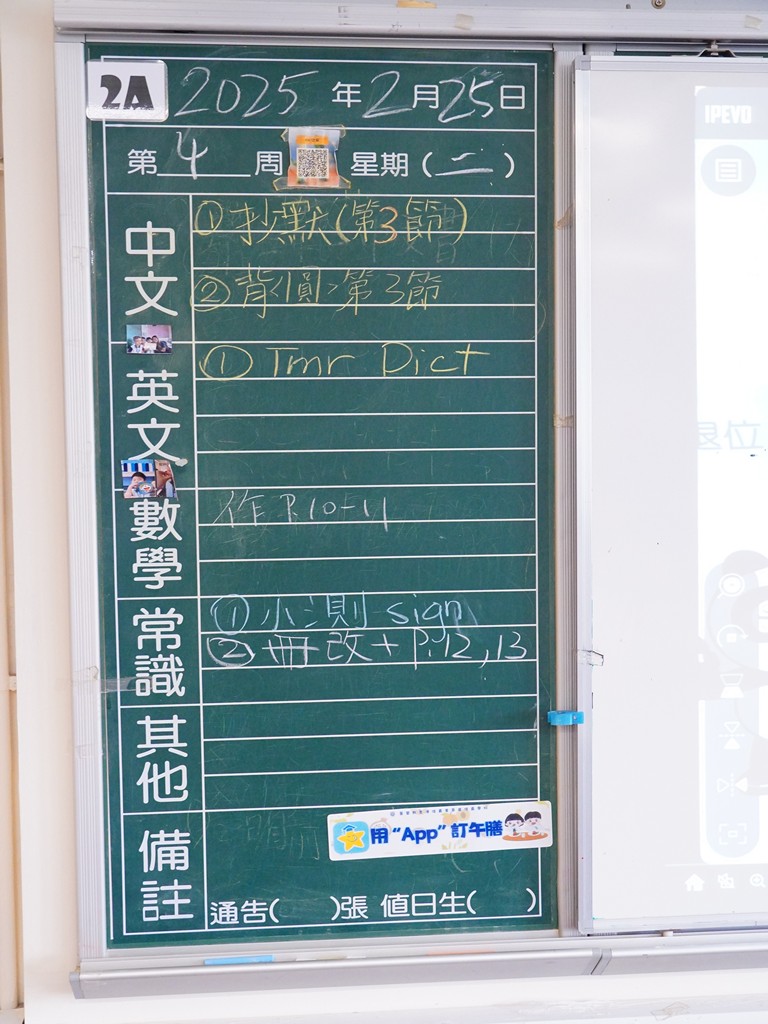 2A 2025年2月25日
第4周 星期(二)
中文
①抄默(第3節)
②背<圓>第3節
英文
①Tmr Dict
數學
作P.10-11
常識
①小測 sign
②冊改+P.12,13
其他
備註
用“App”訂午膳
通告( )張 值日生( )
IPEVO
退位